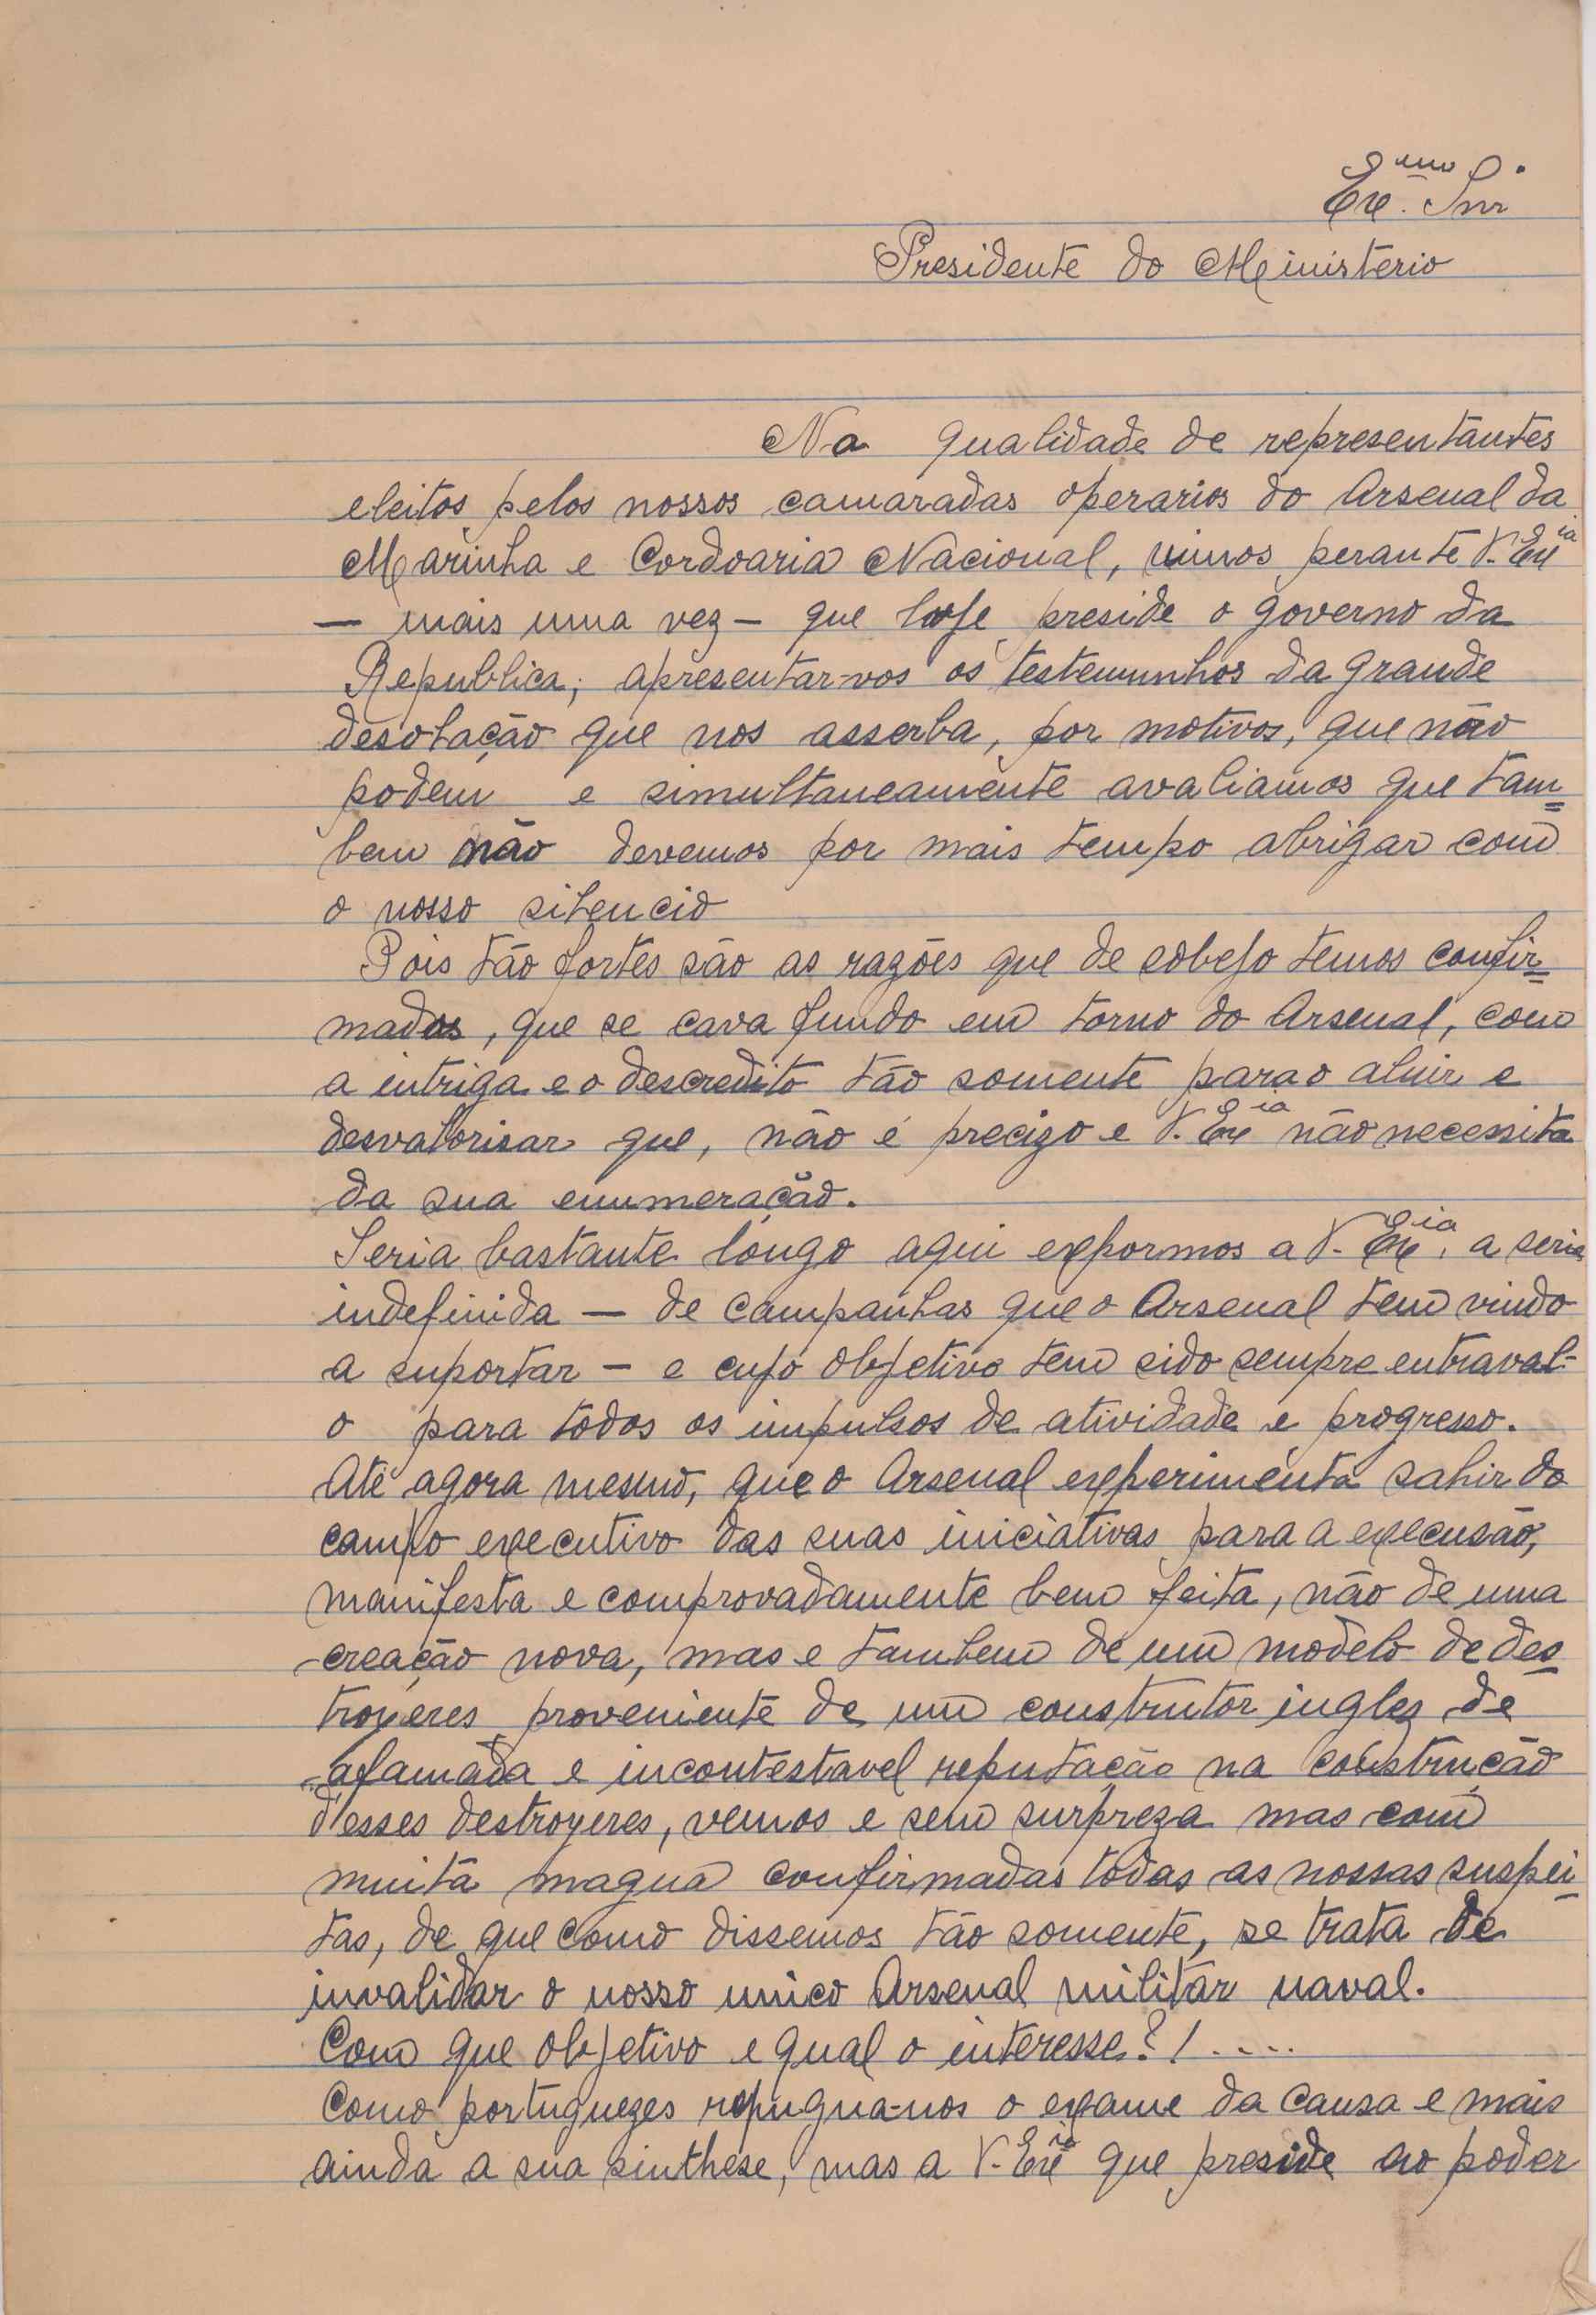 Exc.mo Snr.
Presidente do Ministerio
Na qualidade de representantes
eleitos pelos nossos camaradas operarios do Arsenal da
Marinha e Cordoaria Nacional, vimos perante V. Excia
— mais uma vez — que hoje preside o governo da
Republica; apresentar-vos os testemunhos da grande
desolação que nos asserba, por motivos, que não
podem e simultaneamente avaliamos que tam=
bem não devemos por mais tempo abrigar com
o nosso silencio
Pois tão fortes são as razões que de sobejo temos confir=
madas, que se cava fundo em torno do Arsenal, com
a intriga e o descredito tão somente para o aluir e
desvalorisar que, não é precizo e V. Excia não necessita
da sua enumeração.
Seria bastante longo aqui expormos a V. Excia, a serie
indefinida — de campanhas que o Arsenal tem vindo
a suportar — e cujo objetivo tem sido sempre entraval-
o para todos os impulsos de atividade e progresso.
Até agora mesmo, que o Arsenal experimenta sahir do
campo executivo das suas iniciativas para a execusão,
manifesta e comprovadamente bem feita, não de uma
creação nova, mas e tambem de um modelo de des=
troyeres proveniente de um construtor inglez de
afamada e incontestavel reputação na construção
d'esses destroyeres, vemos e sem surpreza mas com
muita magua confirmadas todas as nossas suspei=
tas, de que como dissemos tão somente, se trata de
invalidar o nosso unico Arsenal militar naval.
Com que objetivo e qual o interesse?! ....
Como portuguezes repugna-nos o exame da causa e mais
ainda a sua sinthese, mas a V. Excia que preside ao poder